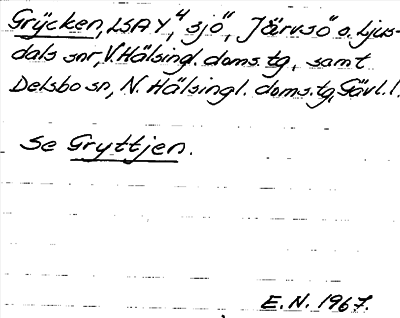 Grycken, LSA Y, "sjö", Järvsö o. Ljus-
dals snr, V. Hälsingl. doms. tg, samt
Delsbo sn, N. Hälsingl. doms. tg, Gävl. l.
Se Gryttjen.
E. N. 1967.